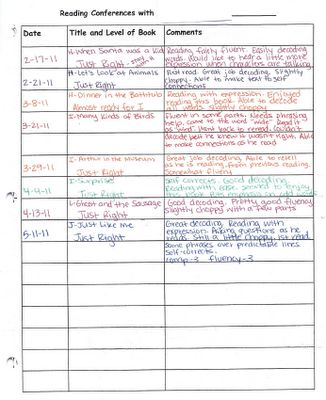 Reading Conferences with
Date Title and Level of Book Comments
2-17-11 H-When Santa was a kid Reading fairly fluent. Easily decoding
Just Right words. Would like to hear a little more
expression when characters are talking.
2-21-11 H-Let's Look at Animals Great job decoding, slightly
Just Right choppy. Able to make text to self
connections
3-8-11 H-Dinner in the Bathtub Reading with expression. Enjoyed
Almost ready for I reading this book. Able to decode
all words slightly choppy
3-21-11 I-Many Kinds of Birds Fluent in some parts. Needs phrasing
help. Came to the word "wide" Read it
as Went back to reread. Couldn't
decode but he knew it wasn't right. Able
to make connections as he read
3-29-11 I-Arthur in the Museum Great job decoding. Able to retell
Just Right as he is reading from previous reading.
Somewhat fluent
4-4-11 I-Surprise Self corrects. Good decoding.
Just Right Reading with ease. Seemed to enjoy
4-13-11 I-Ghost and the Sausage Good decoding. Pretty good fluency
Just Right slightly choppy with a few parts
5-11-11 J-Just Like Me Great decoding. Reading with
Just Right expression. Asking questions as he
reads. Still a little choppy. 1st read
Some phrases over predictable lines.
Self-corrects.
comp-3 fluency-3